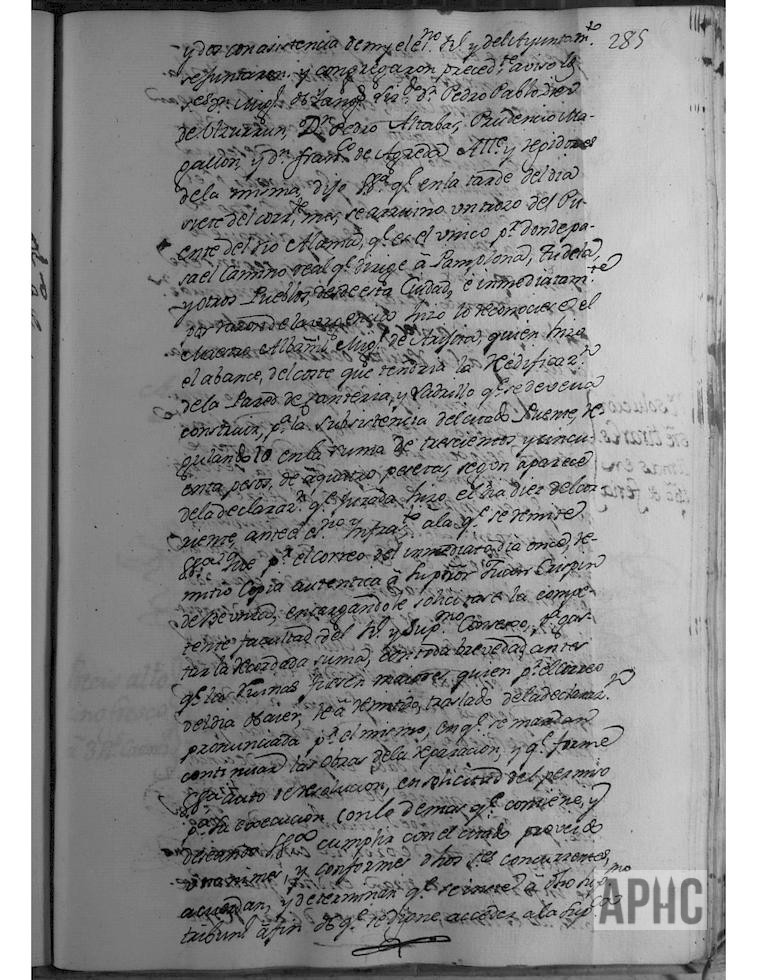 285
y dos con asistencia de my el esno. Rl. y del Ayuntamto.
se juntaron y congregaron preced.te aviso los
res dn. Migl. de
Dn. Pedro Pablo Diez
de Ulzurrun, Dn. Pedro Alcaba, Prudencio Ma-
gallon, y Dn. Franco. de Agreda Alle. y regidores
de la misma, dijo ql. en la tarde del dia
siete del corrte. mes, se arruino un trozo del Pu-
ente del rio Alama, ql. es el unico pr. donde pa-
sa el Camino real ql. dirige â Pamplona, Tudela,
y otros Pueblos, desde esta Ciudad, e inmediatamte.
por razon de la urgencia hizo lo reconociere el
Maestro Albañil Migl. de quien hizo
el abance, del coste que tendria la Redificazn.
de la Pared de Canteria, y Ladrillo ql. se devera
construir, pa. la subsistencia del citado Puente, re-
gulandolo en la suma de trescientos y cincu-
enta pesos, de â quatro pesetas, segun aparece
de la declarazn. ql. jurada hizo el dia diez del cor-
riente, ante el esno. y Infrato. a la ql. se remite
que pr. el correo del inmediato dia once, re-
mitio Copia autentica â
de encargandole solicitare la compe-
tente facultad del Rl. y Supmo. Consejo, pa. gas-
tar la recordada suma, con toda brevedad, antes
ql. las ruinas fuesen maiores, quien pr. el correo
del dia de aier, le â remitido, traslado de la declarazn.
pronunciada pr. el mismo, en ql. se mandan
continuar las obras de la reparacion, y ql. forme
auto de resolucion, en solicitud del permiso
pa. su execucion con lo demas ql. contiene, y
deseando cumplir con el citado proveido
unanimes, y conformes dhos Ses. concurrentes,
acuerdan, y determinan ql. se remita â dho Supmo.
tribunl. â fin de ql. se digne acceder a la Supcon.
APHC